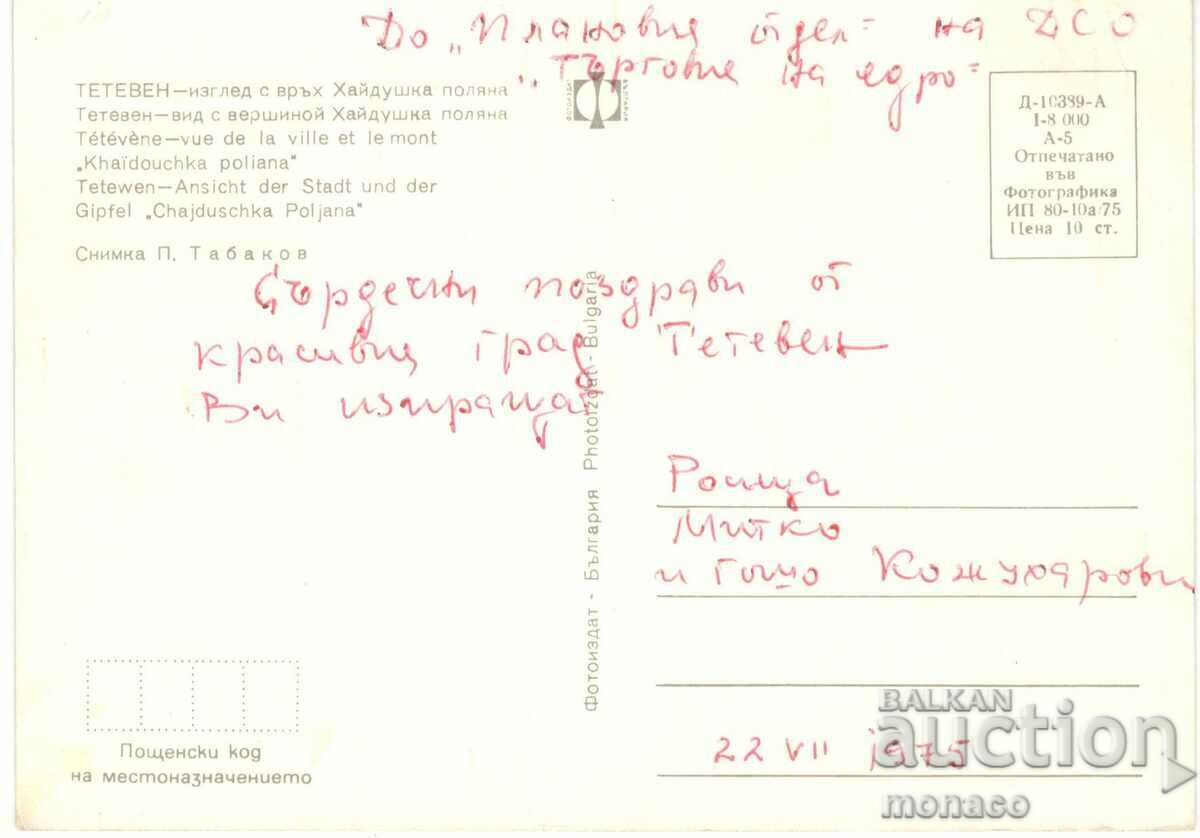 До „Плановия отдел" на ДСО
„Търговия на едро"
ТЕТЕВЕН—изглед с връх Хайдушка поляна
Тетевен—вид с вершиной Хайдушка поляна
Tétévène—vue de la ville et le mont
„Khaïdouchka poliana"
Tetewen—Ansicht der Stadt und der
Gipfel „Chajduschka Poljana"
Снимка П. Табаков
Д-10389-А
I-8 000
А-5
Отпечатано
във
Фотографика
ИП 80-10а/75
Цена 10 ст.
Сърдечни поздрави от
красивия град Тетевен
Ви изпращат
Росица
Митко
и Гошо Кожухарови
22 VII 1975
Фотоиздат - България Photoizdat - Bulgaria
Пощенски код
на местоназначението
BALKAN
auction
monaco